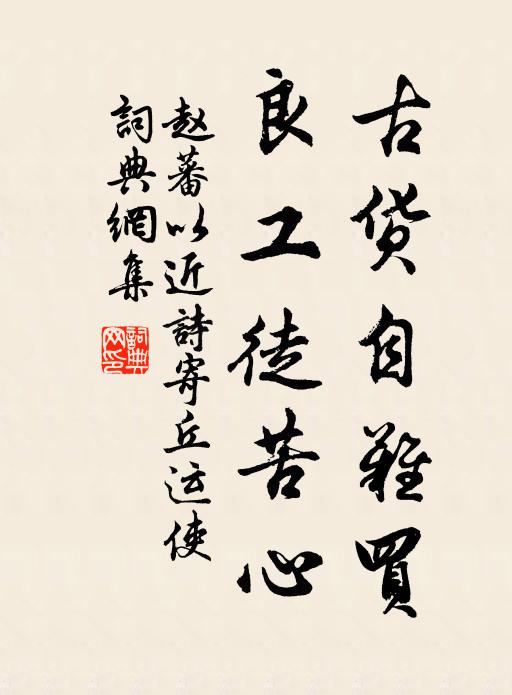 古货自難買
良工徒苦心
赵蕃以近詩寄丘运使
詞典網集
詞典
网印